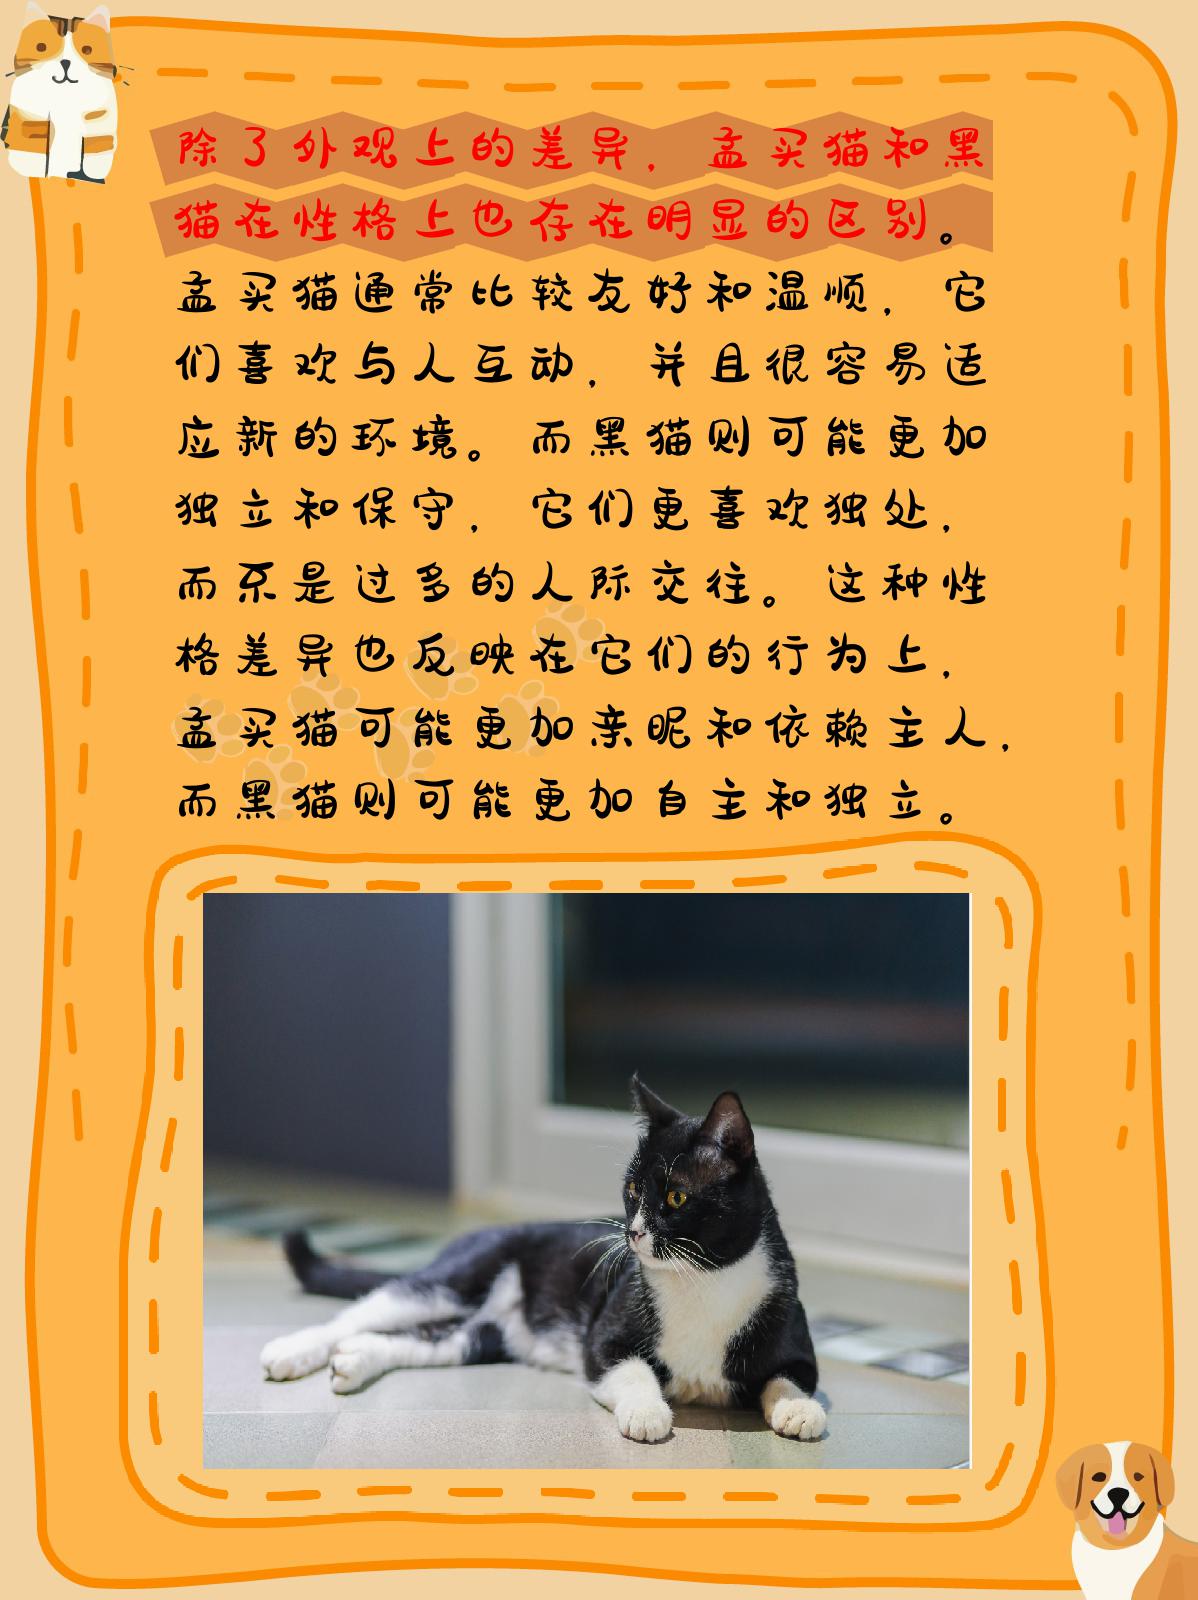 除了外观上的差异，孟买猫和黑
猫在性格上也存在明显的区别。
孟买猫通常比较友好和温顺，它
们喜欢与人互动，并且很容易适
应新的环境。而黑猫则可能更加
独立和保守，它们更喜欢独处，
而不是过多的人际交往。这种性
格差异也反映在它们的行为上，
孟买猫可能更加亲昵和依赖主人，
而黑猫则可能更加自主和独立。